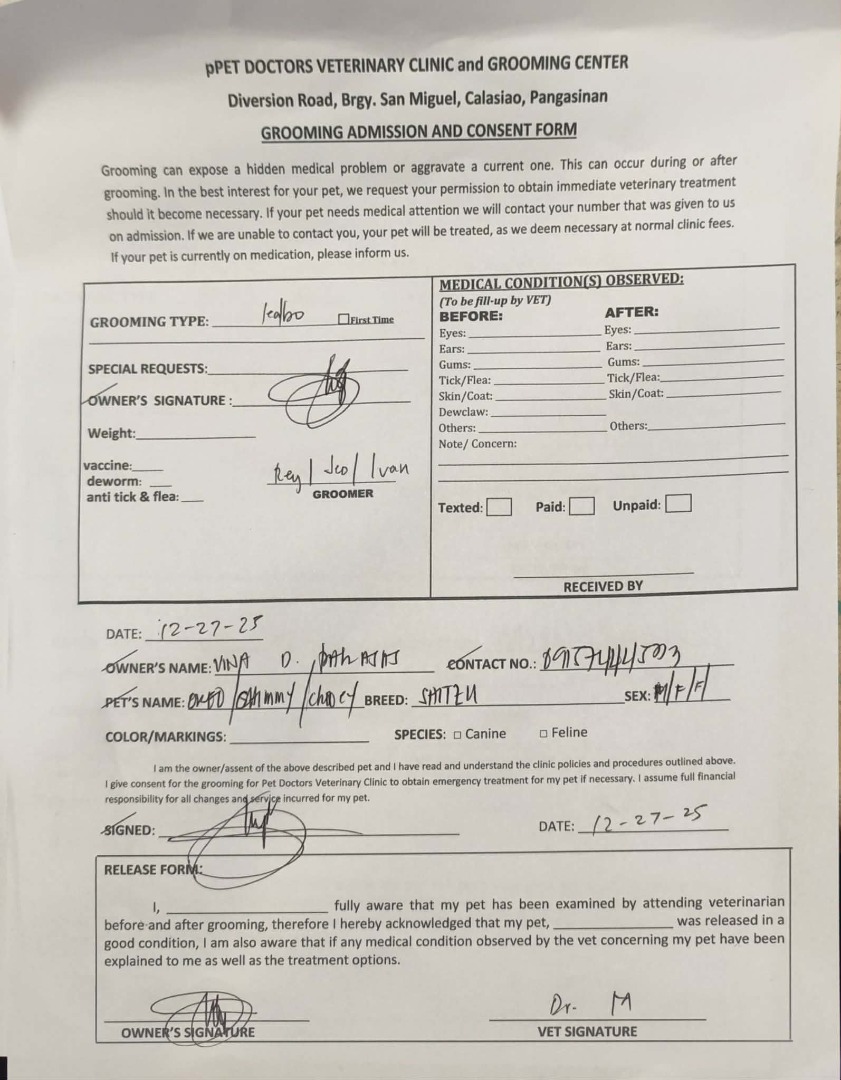 pPET DOCTORS VETERINARY CLINIC and GROOMING CENTER
Diversion Road, Brgy. San Miguel, Calasiao, Pangasinan
GROOMING ADMISSION AND CONSENT FORM
Grooming can expose a hidden medical problem or aggravate a current one. This can occur during or after
grooming. In the best interest for your pet, we request your permission to obtain immediate veterinary treatment
should it become necessary. If your pet needs medical attention we will contact your number that was given to us
on admission. If we are unable to contact you, your pet will be treated, as we deem necessary at normal clinic fees.
If your pet is currently on medication, please inform us.
GROOMING TYPE: First Time
SPECIAL REQUESTS:
OWNER'S SIGNATURE :
Weight:
vaccine:
deworm:
anti tick & flea:
Rey / Jeo / Ivan
GROOMER
MEDICAL CONDITION(S) OBSERVED:
(To be fill-up by VET)
BEFORE: AFTER:
Eyes: Eyes:
Ears: Ears:
Gums: Gums:
Tick/Flea: Tick/Flea:
Skin/Coat: Skin/Coat:
Dewclaw:
Others: Others:
Note/ Concern:
Texted: Paid: Unpaid:
RECEIVED BY
DATE: 12-27-25
OWNER'S NAME: VINA D. CONTACT NO.:
PET'S NAME: BREED: SHITZU SEX: M/F/F
COLOR/MARKINGS: SPECIES: Canine Feline
I am the owner/assent of the above described pet and I have read and understand the clinic policies and procedures outlined above.
I give consent for the grooming for Pet Doctors Veterinary Clinic to obtain emergency treatment for my pet if necessary. I assume full financial
responsibility for all changes and service incurred for my pet.
SIGNED: DATE: 12-27-25
RELEASE FORM:
I, fully aware that my pet has been examined by attending veterinarian
before and after grooming, therefore I hereby acknowledged that my pet, was released in a
good condition, I am also aware that if any medical condition observed by the vet concerning my pet have been
explained to me as well as the treatment options.
Dr. M
OWNER'S SIGNATURE VET SIGNATURE